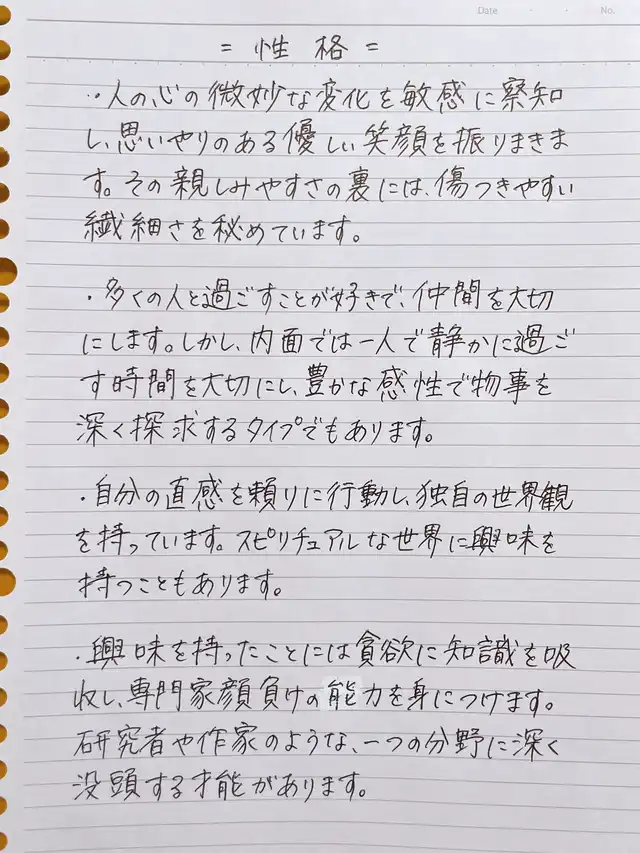 Date ・ ・ No.
= 性 格 =
・人の心の微妙な変化を敏感に察知
し、思いやりのある優しい笑顔を振りまきま
す。その親しみやすさの裏には、傷つきやすい
繊細さを秘めています。
・多くの人と過ごすことが好きで、仲間を大切
にします。しかし、内面では一人で静かに過ご
す時間を大切にし、豊かな感性で物事を
深く探求するタイプでもあります。
・自分の直感を頼りに行動し、独自の世界観
を持っています。スピリチュアルな世界に興味を
持つこともあります。
・興味を持ったことには貪欲に知識を吸
収し、専門家顔負けの能力を身につけます。
研究者や作家のような、一つの分野に深く
没頭する才能があります。